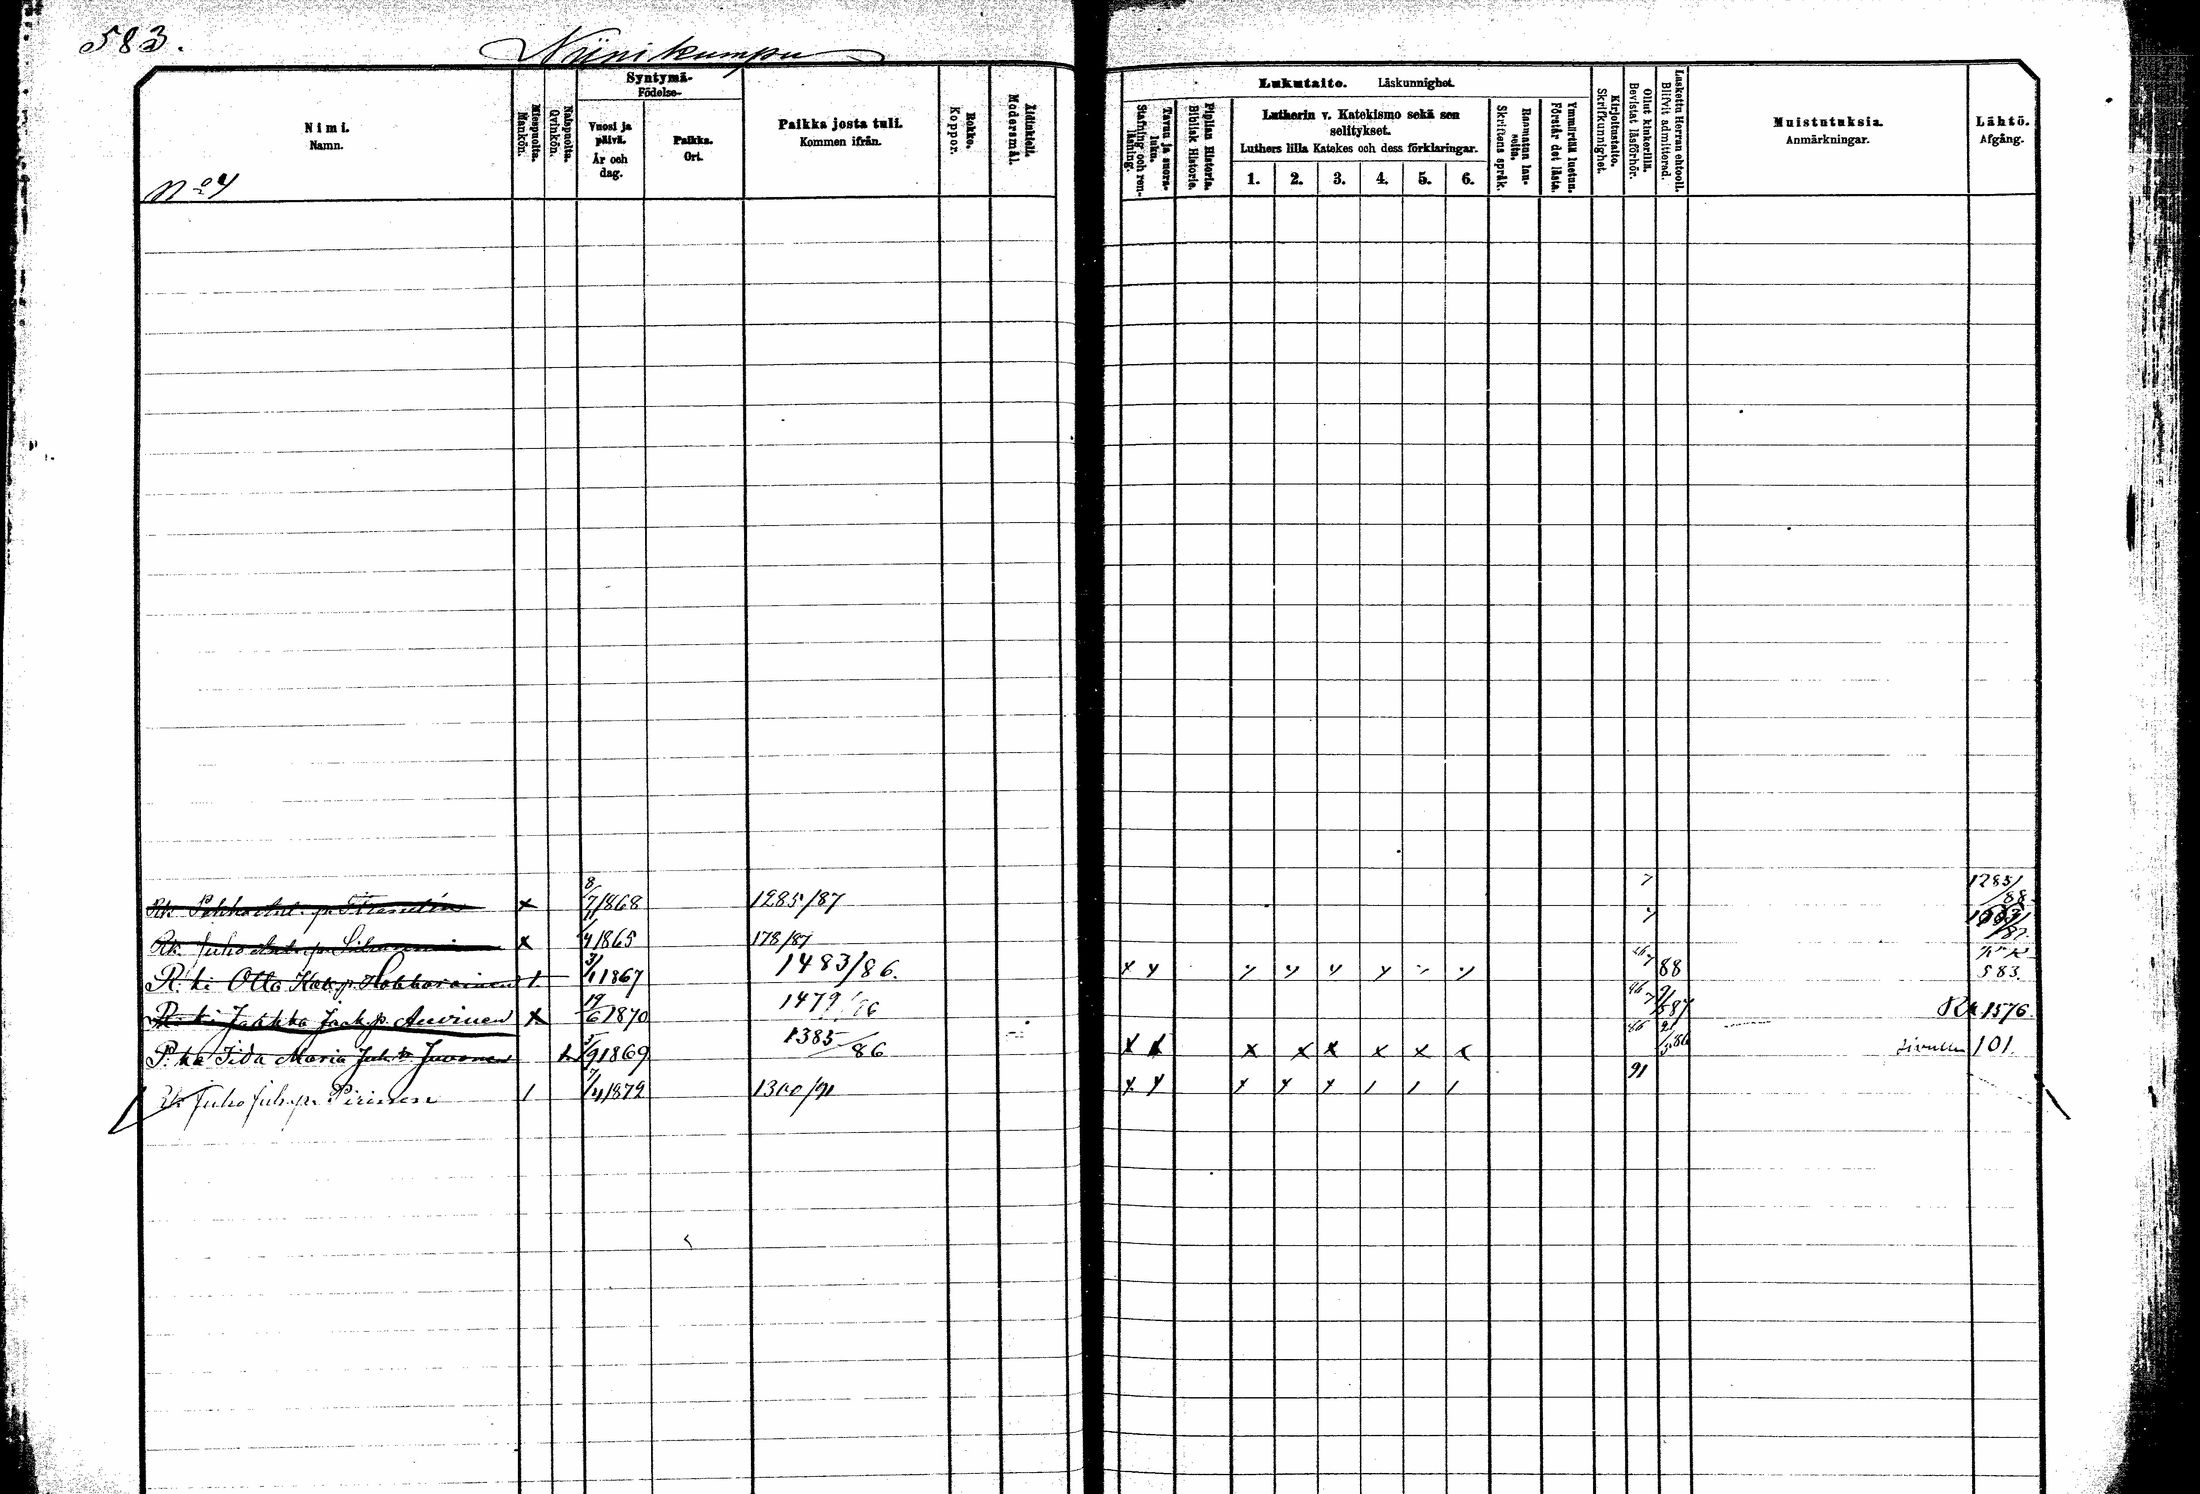 583.
Niinikumpu
Nimi.
Namn.
Miespuolta.
Mankön.
Naispuolta.
Qvinkön.
Syntymä-
Födelse-
Vuosi ja
päivä.
År och
dag.
Paikka.
Ort.
Paikka josta tuli.
Kommen ifrån.
Rokko.
Koppor.
Äidinkieli.
Modersmål.
Lukutaito. Läskunnighet.
Tavuu ja suora-
luku.
Stafning och ren-
läsning.
Piplian Historia.
Biblisk Historie.
Lutherin v. Katekismo sekä sen
selitykset.
Luthers lilla Katekes och dess förklaringar.
1. 2. 3. 4. 5. 6.
Raamatun lau-
seita.
Skriftens språk.
Ymmärtää luetun.
Förstår det lästa.
Kirjoitustaito.
Skrifkunnighet.
Ollut kinkerillä.
Bevistat läsförhör.
Laskettu Herran ehtooll.
Blifvit admitterad.
Muistutuksia.
Anmärkningar.
Lähtö.
Afgång.
No 4
Rk Pekka Ant. p. x 8/7 1868 1285/87 7 1285/88
Rk. Juho p. x 4 1865 178/87 7
R. ki Otto p. Kokkarainen 1 3/1 1867 1483/86. 7 88 583.
R. ki Jaakko Jaak. p. Auvinen x 19/6 1870 1479/86 86 7 Rk 1576
P. ka Iida Maria Juh. tr. Juvonen 5/9 1869 1385/86 x x x x x x x x 86 sivulle 101.
Rk Juho Juh. p. Piirinen 1 7/4 1872 1300/91 x x x x x 1 1 1 91